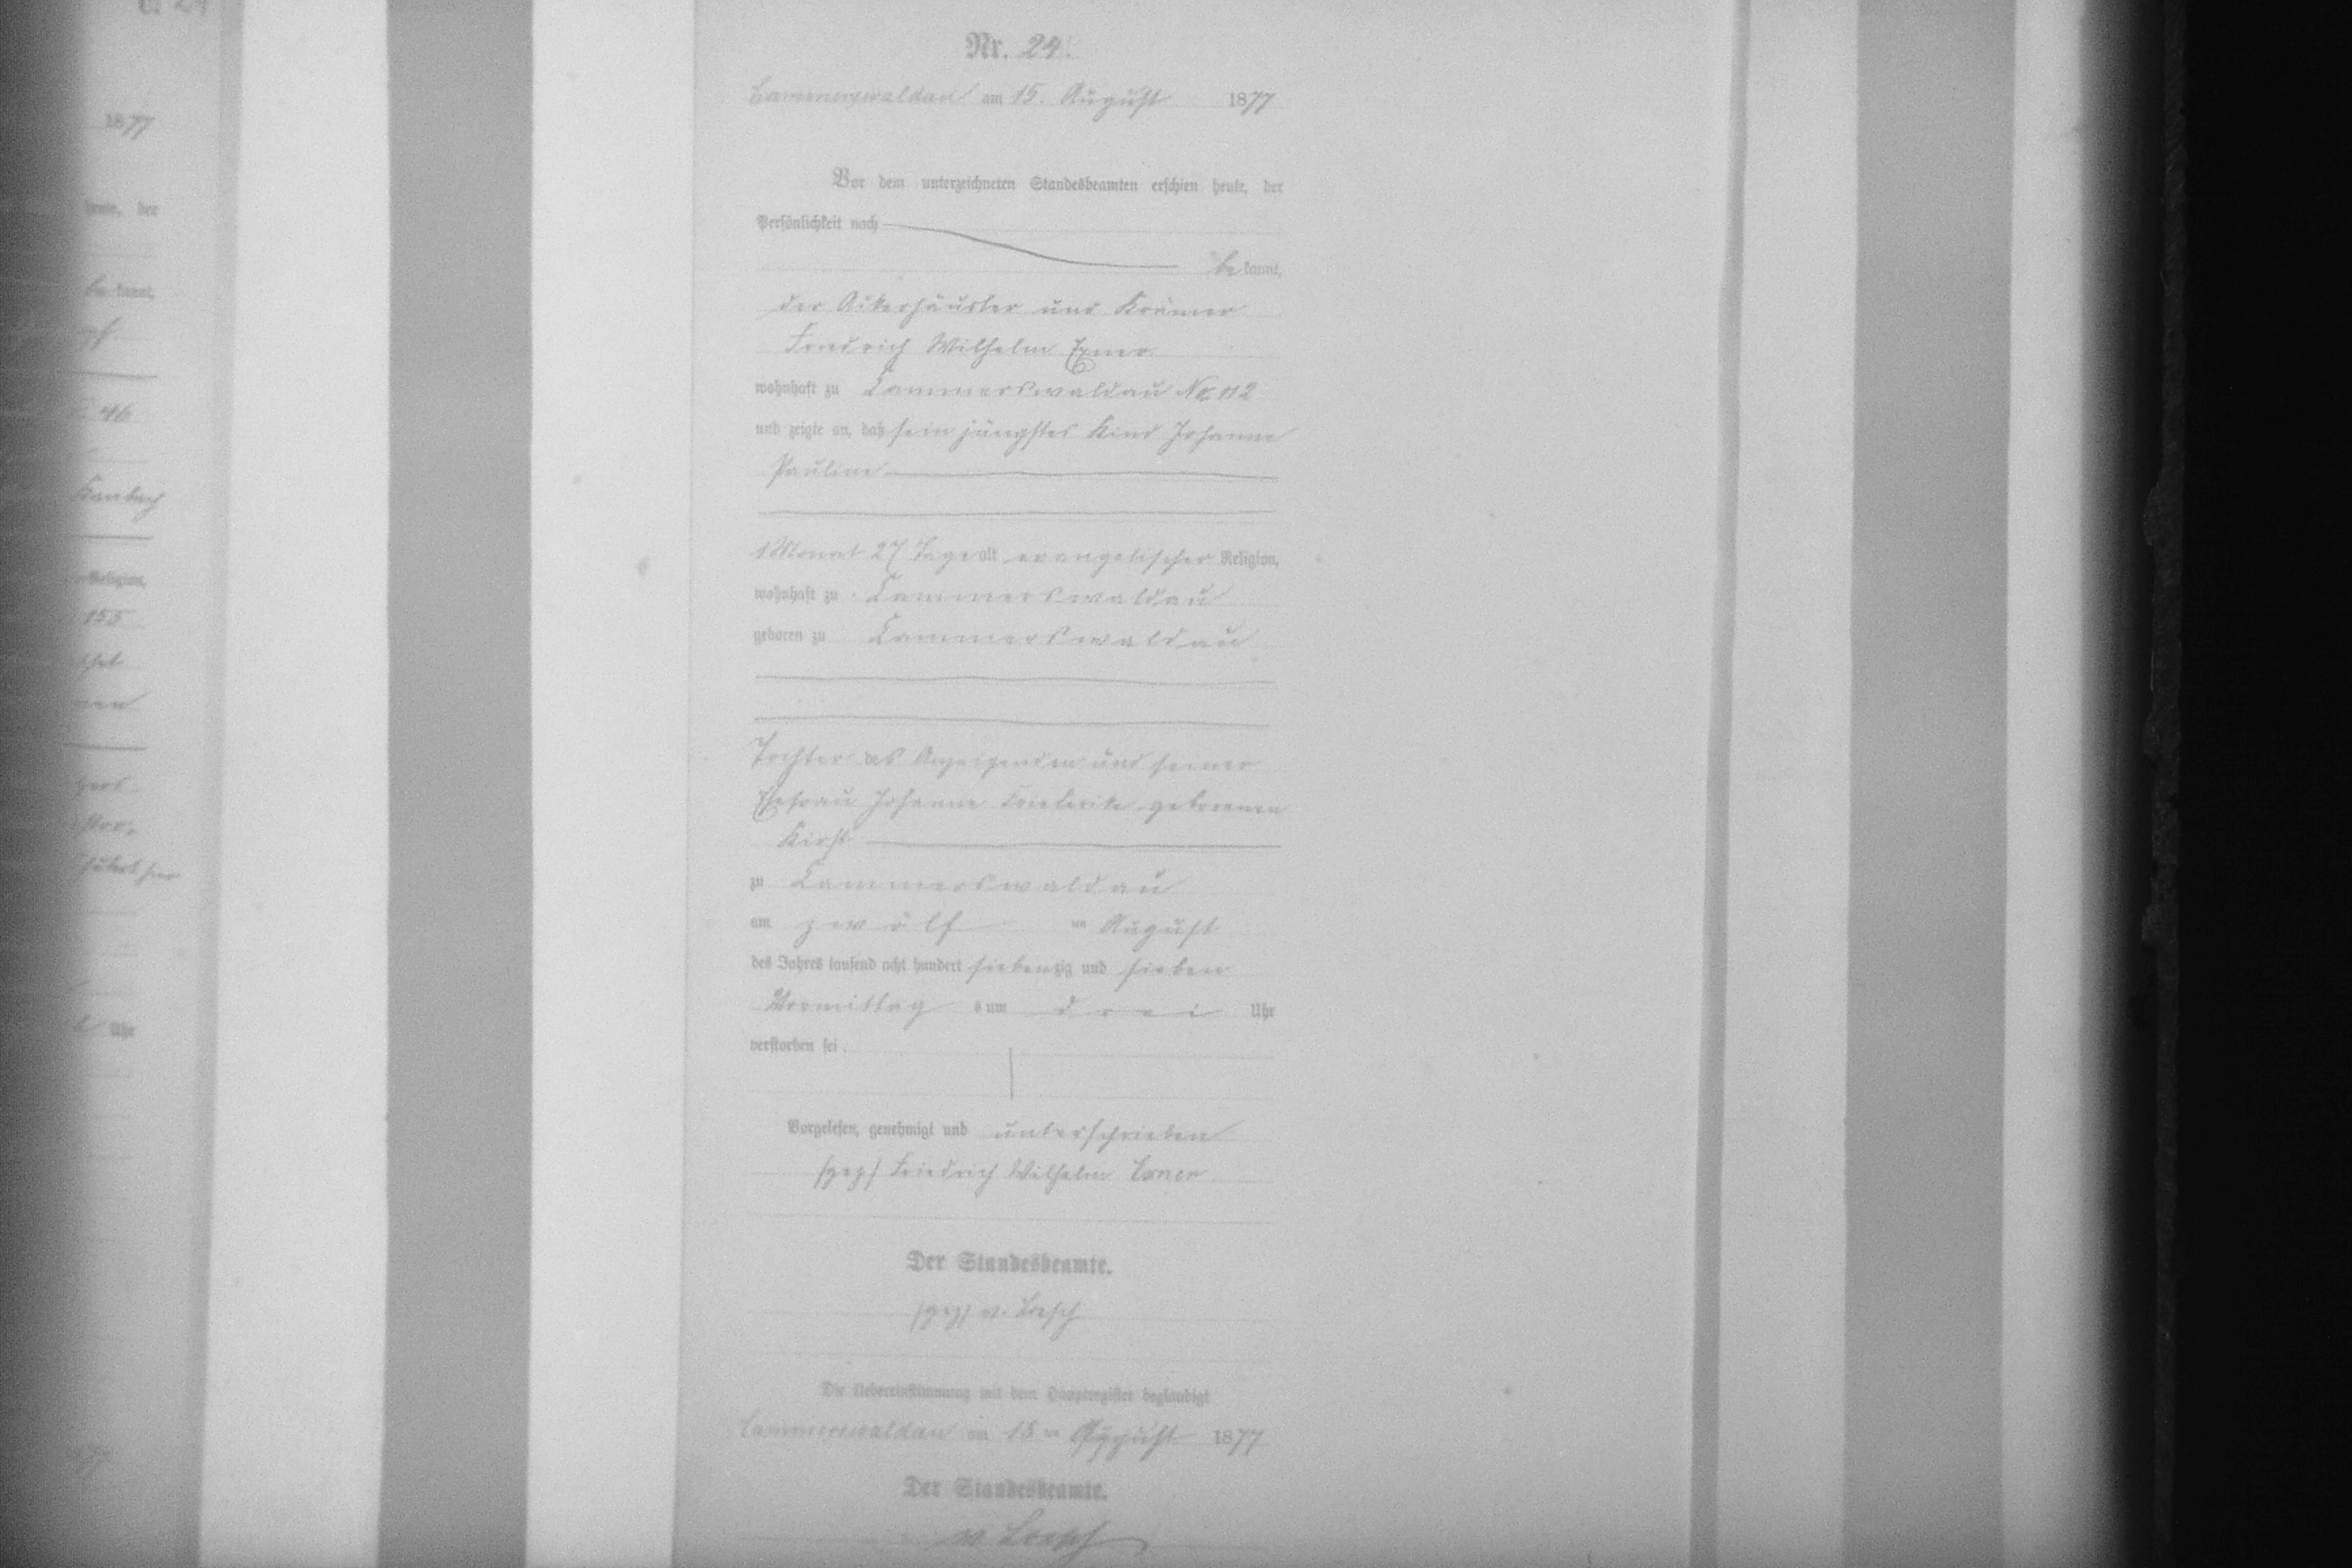 Nr. 24.
Cammerswaldau am 15. August 1877
Vor dem unterzeichneten Standesbeamten erschien heute, der
Persönlichkeit nach
bekannt,
der Ackerhäusler und Krämer
Friedrich Wilhelm Exner
wohnhaft zu Cammerswaldau No. 112
und zeigte an, daß sein jüngstes Kind Johanne
Pauline
1 Monat 27 Tage alt evangelischer Religion,
wohnhaft zu Cammerswaldau
geboren zu Cammerswaldau
Tochter des Anzeigenden und seiner
Ehefrau Johanne Friederike geborenen
Kirst
zu Cammerswaldau
am zwölf ten August
des Jahres tausend acht hundert siebenzig und sieben
Vormittag s um drei Uhr
verstorben sei.
Vorgelesen, genehmigt und unterschrieben
(gez) Friedrich Wilhelm Exner
Der Standesbeamte.
(gez) v.
Die Uebereinstimmung mit dem Hauptregister beglaubigt
Cammerswaldau am 15 ten August 1877
Der Standesbeamte.
v.
1877
heute, der
bekannt,
46
Religion,
155
Uhr